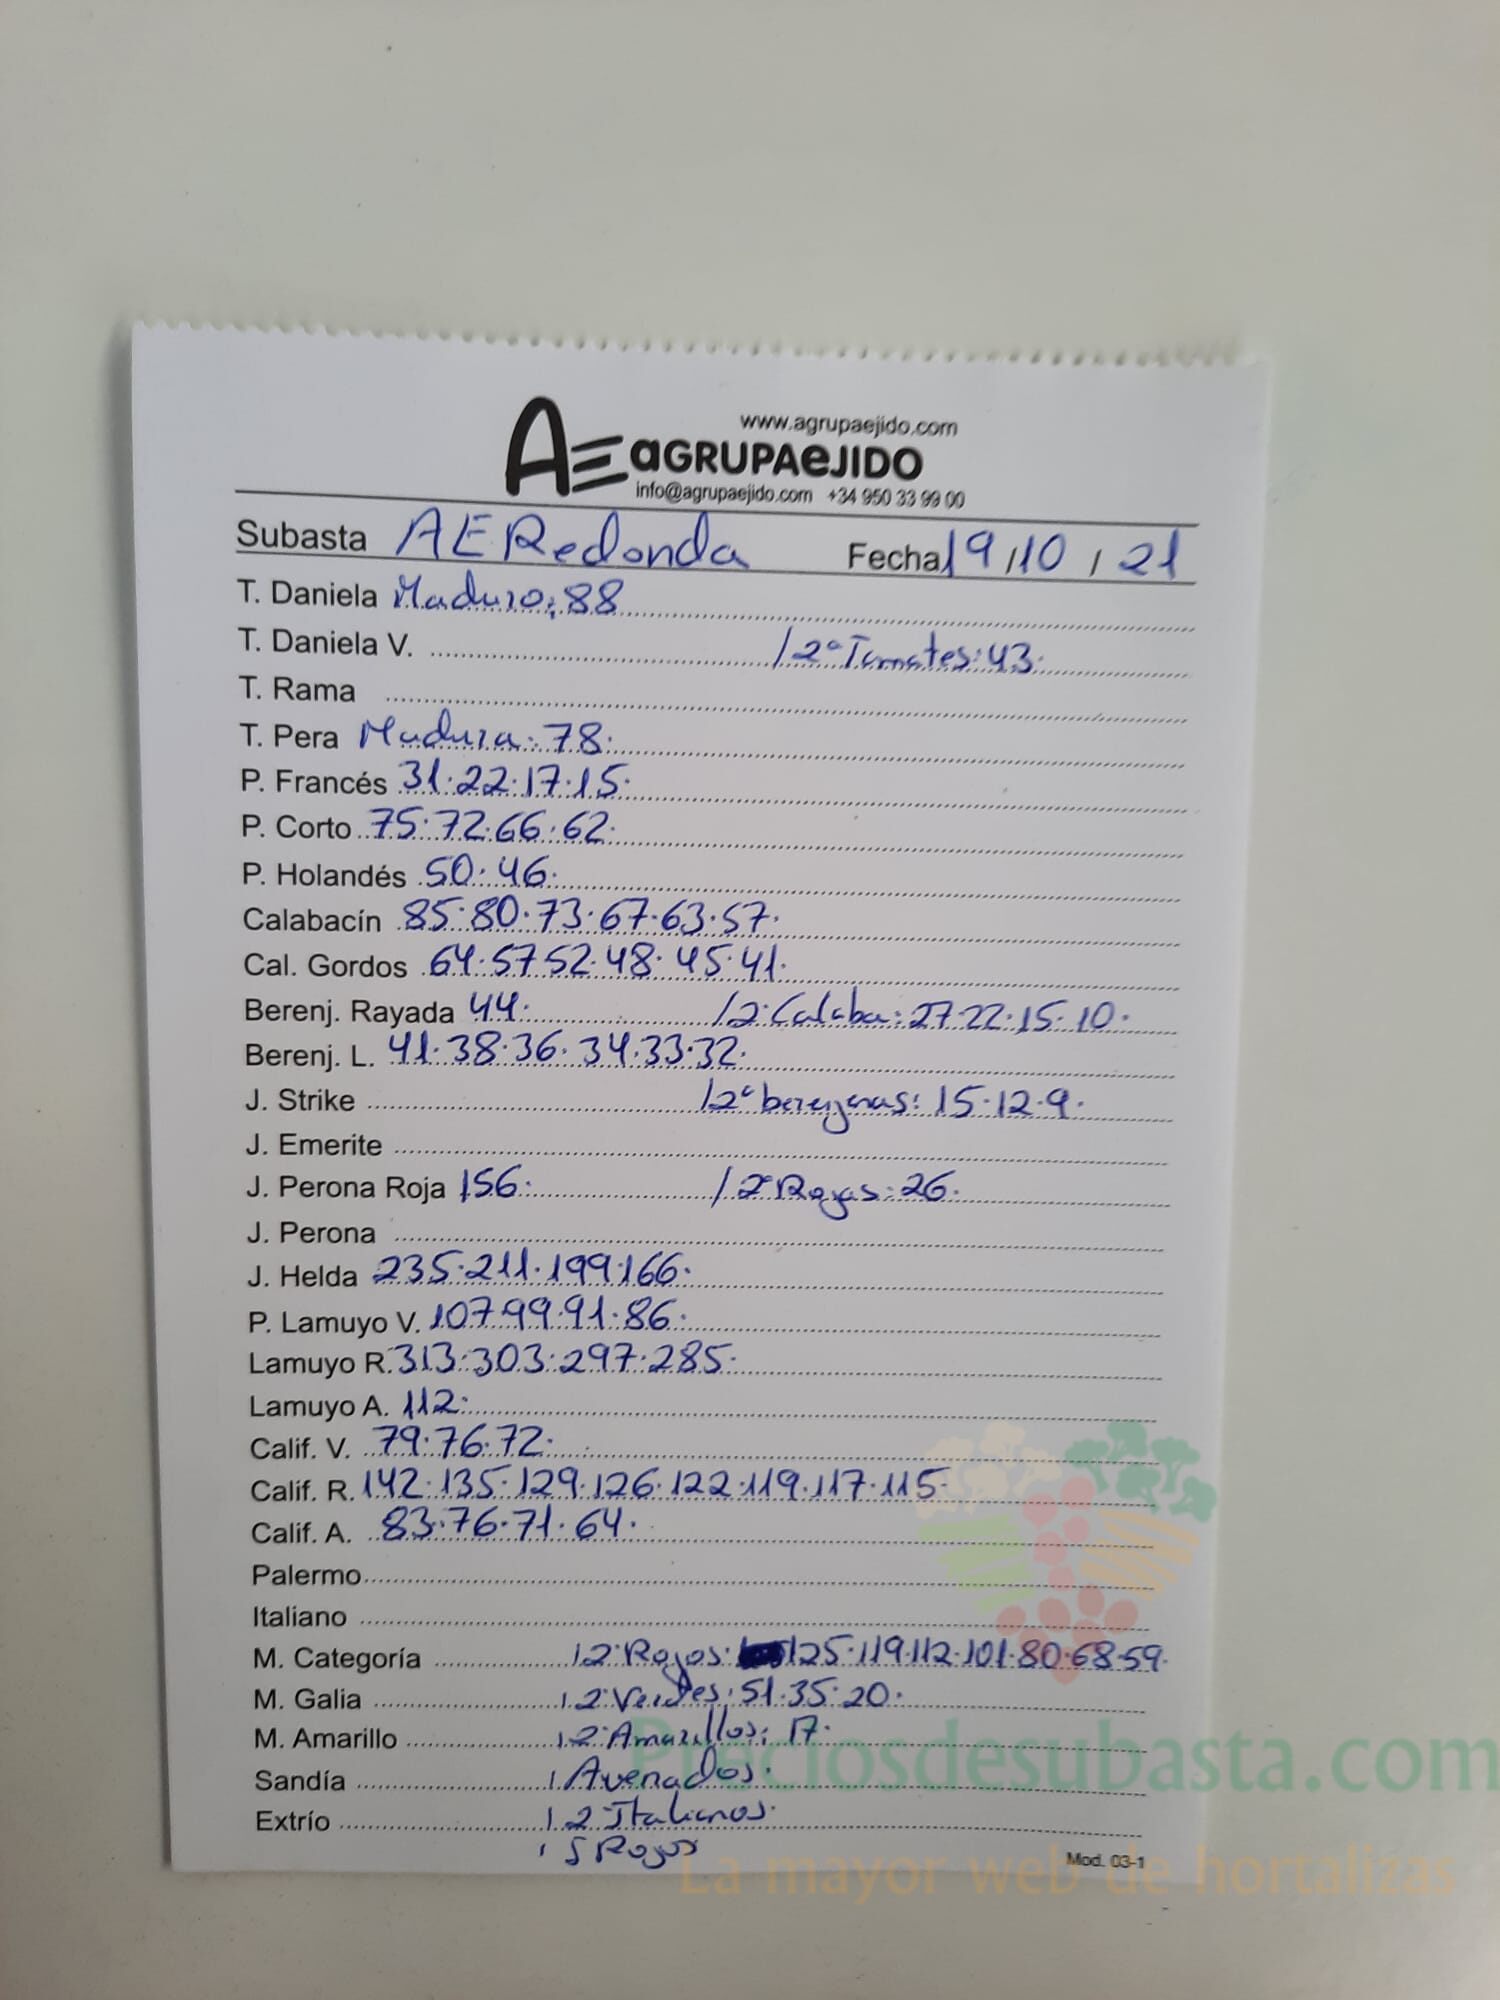 www.agrupaejido.com
AE aGRUPAeJIDO
info@agrupaejido.com +34 950 33 99 00
Subasta AE Redonda Fecha 19/10/21
T. Daniela Maduro: 88
T. Daniela V. / 2ª Tomates: 43.
T. Rama
T. Pera Madura: 78.
P. Francés 31·22·17·15.
P. Corto 75·72·66·62.
P. Holandés 50·46.
Calabacín 85·80·73·67·63·57.
Cal. Gordos 64·57·52·48·45·41.
Berenj. Rayada 44. / 2ª Calaba: 27·22·15·10.
Berenj. L. 41·38·36·34·33·32.
J. Strike / 2ª berenjenas: 15·12·9.
J. Emerite
J. Perona Roja 156. / 2ª Rojas: 26.
J. Perona
J. Helda 235·211·199·166.
P. Lamuyo V. 107·99·91·86.
Lamuyo R. 313·303·297·285.
Lamuyo A. 112.
Calif. V. 79·76·72.
Calif. R. 142·135·129·126·122·119·117·115.
Calif. A. 83·76·71·64.
Palermo
Italiano
M. Categoría / 2ª Rojos: 125·119·112·101·80·68·59.
M. Galia / 2ª Verdes: 51·35·20.
M. Amarillo / 2ª Amarillos: 17.
Sandía / Avenados.
Extrío / 2ª Italianos.
/ S Rojos
Mod. 03-1
Preciosdesubasta.com
La mayor web de hortalizas